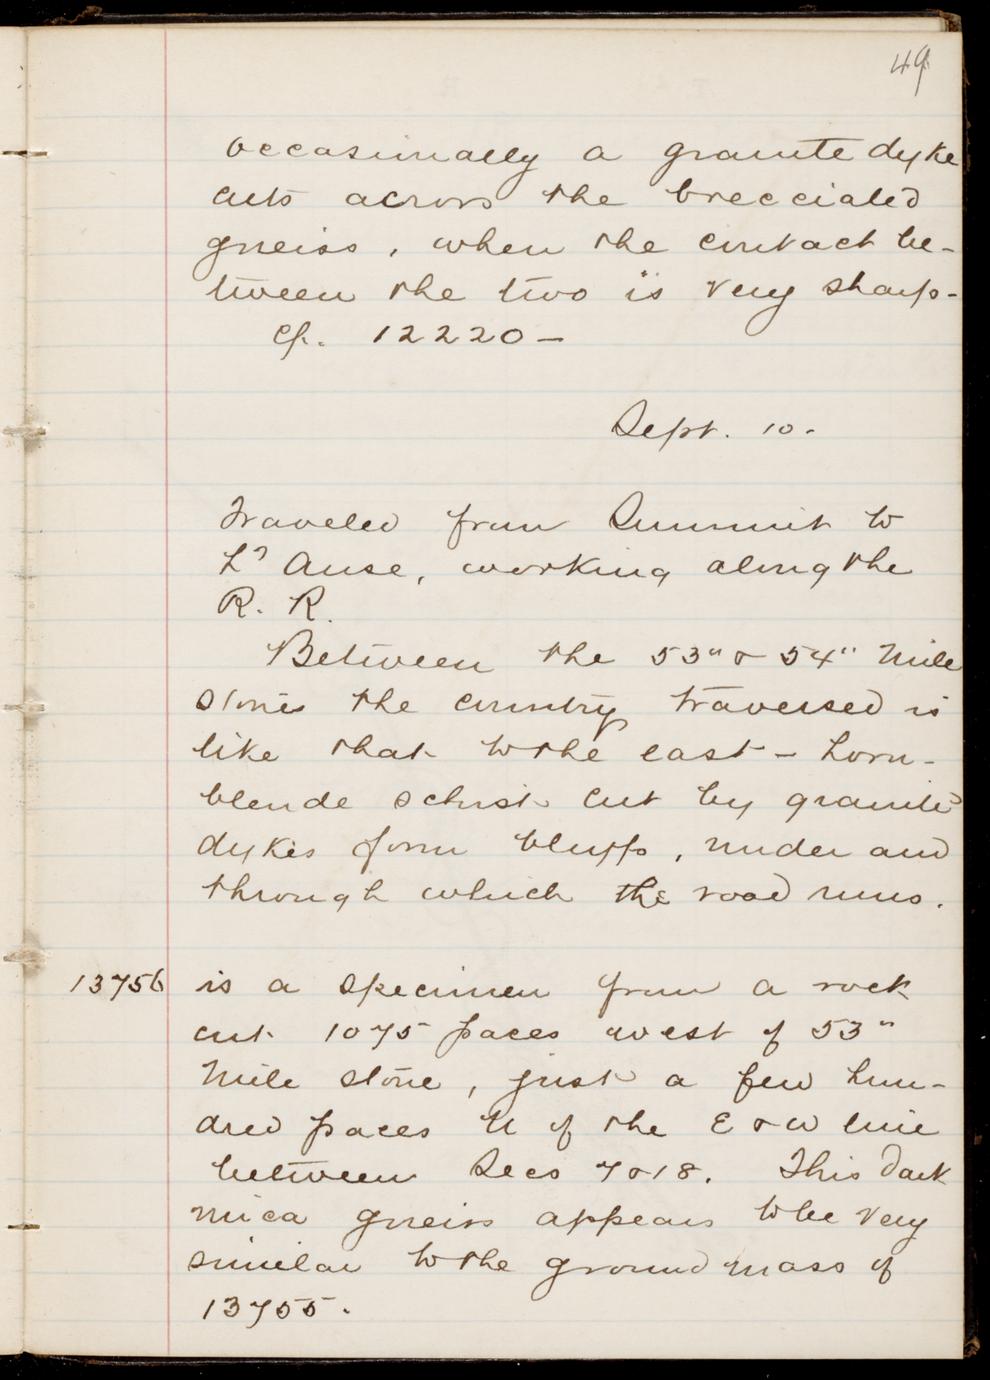 49
occasionally a granite dyke
cuts across the brecciated
gneiss, when the contact be-
tween the two is very sharp-
Cf. 12220 -
Sept. 10.
Traveled from Summit to
L'Anse, working along the
R. R.
Between the 53" & 54" Mile
stones the country traversed is
like that to the east - horn-
blende schist cut by granite
dykes form bluffs, under and
through which the road runs.
13756 is a specimen from a rock
cut 1075 paces west of 53"
Mile stone, just a few hun-
dred paces N of the E & W line
between Secs 7 & 18. This dark
mica gneiss appears to be very
similar to the ground mass of
13755.